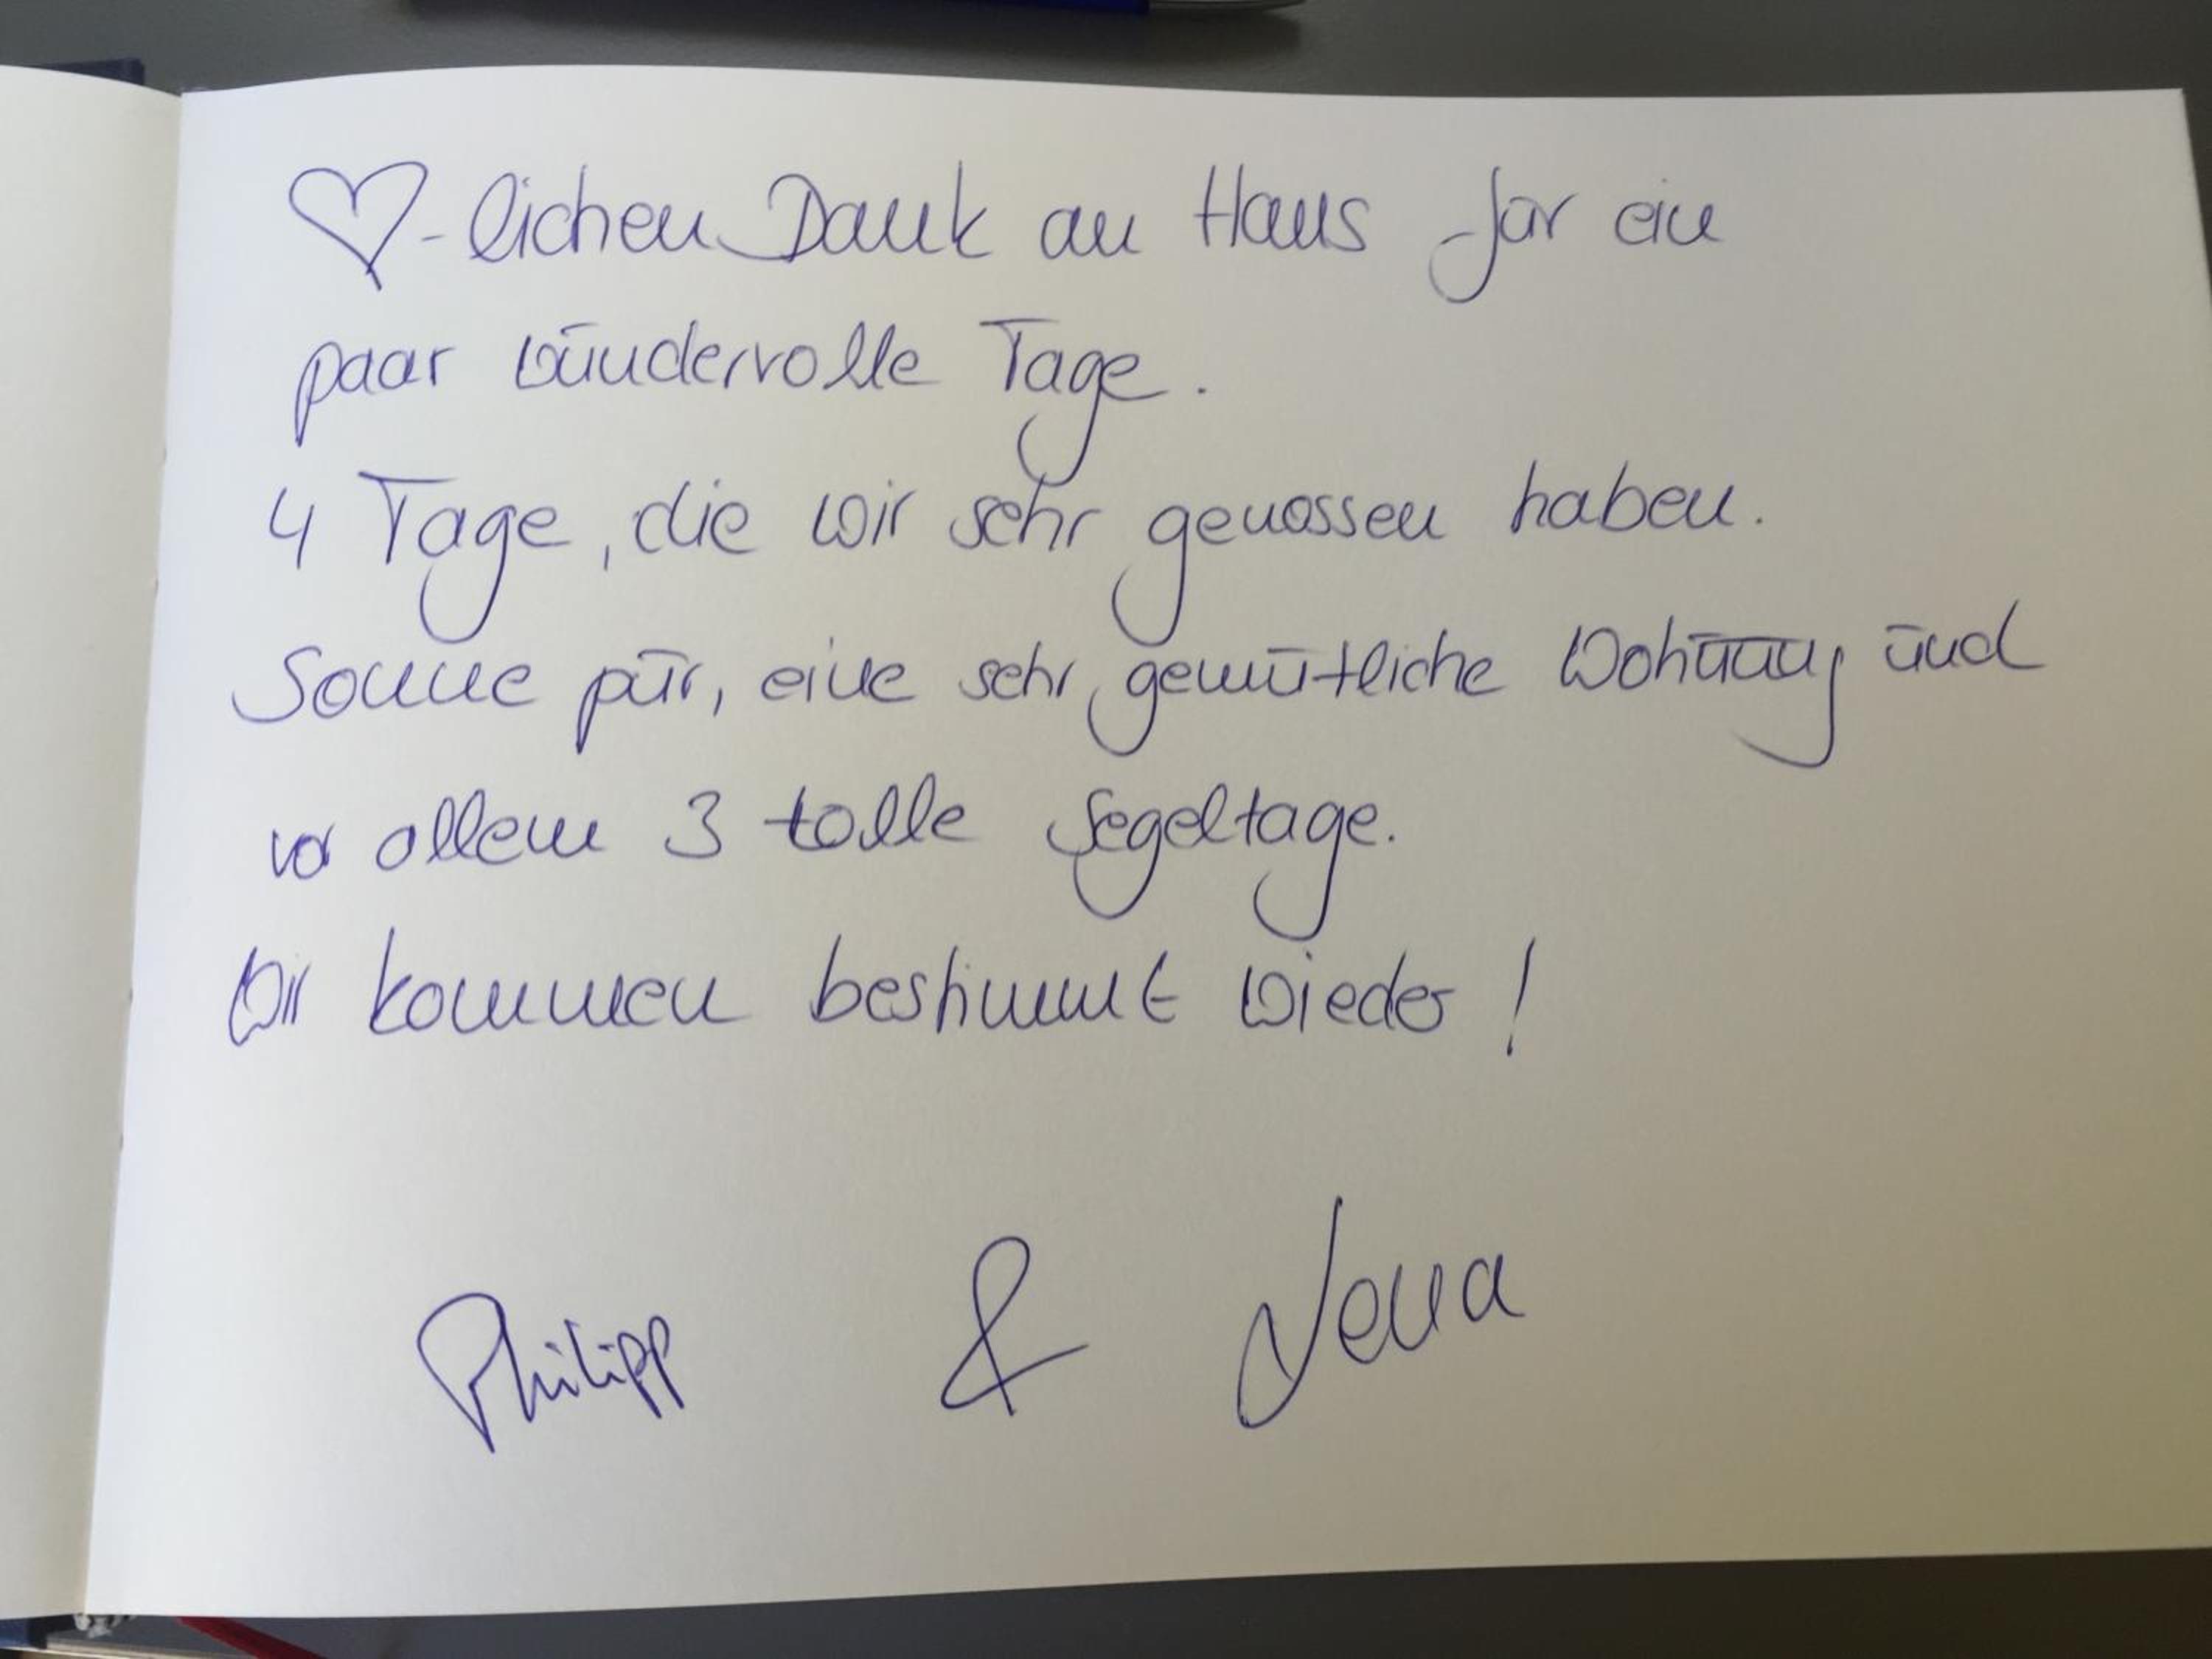 ♡-lichen Dank an Hans für ein
paar wundervolle Tage.
4 Tage, die wir sehr genossen haben.
Sonne pur, eine sehr gemütliche Wohnung und
vor allem 3 tolle Segeltage.
Wir kommen bestimmt wieder!
Philipp & Lena